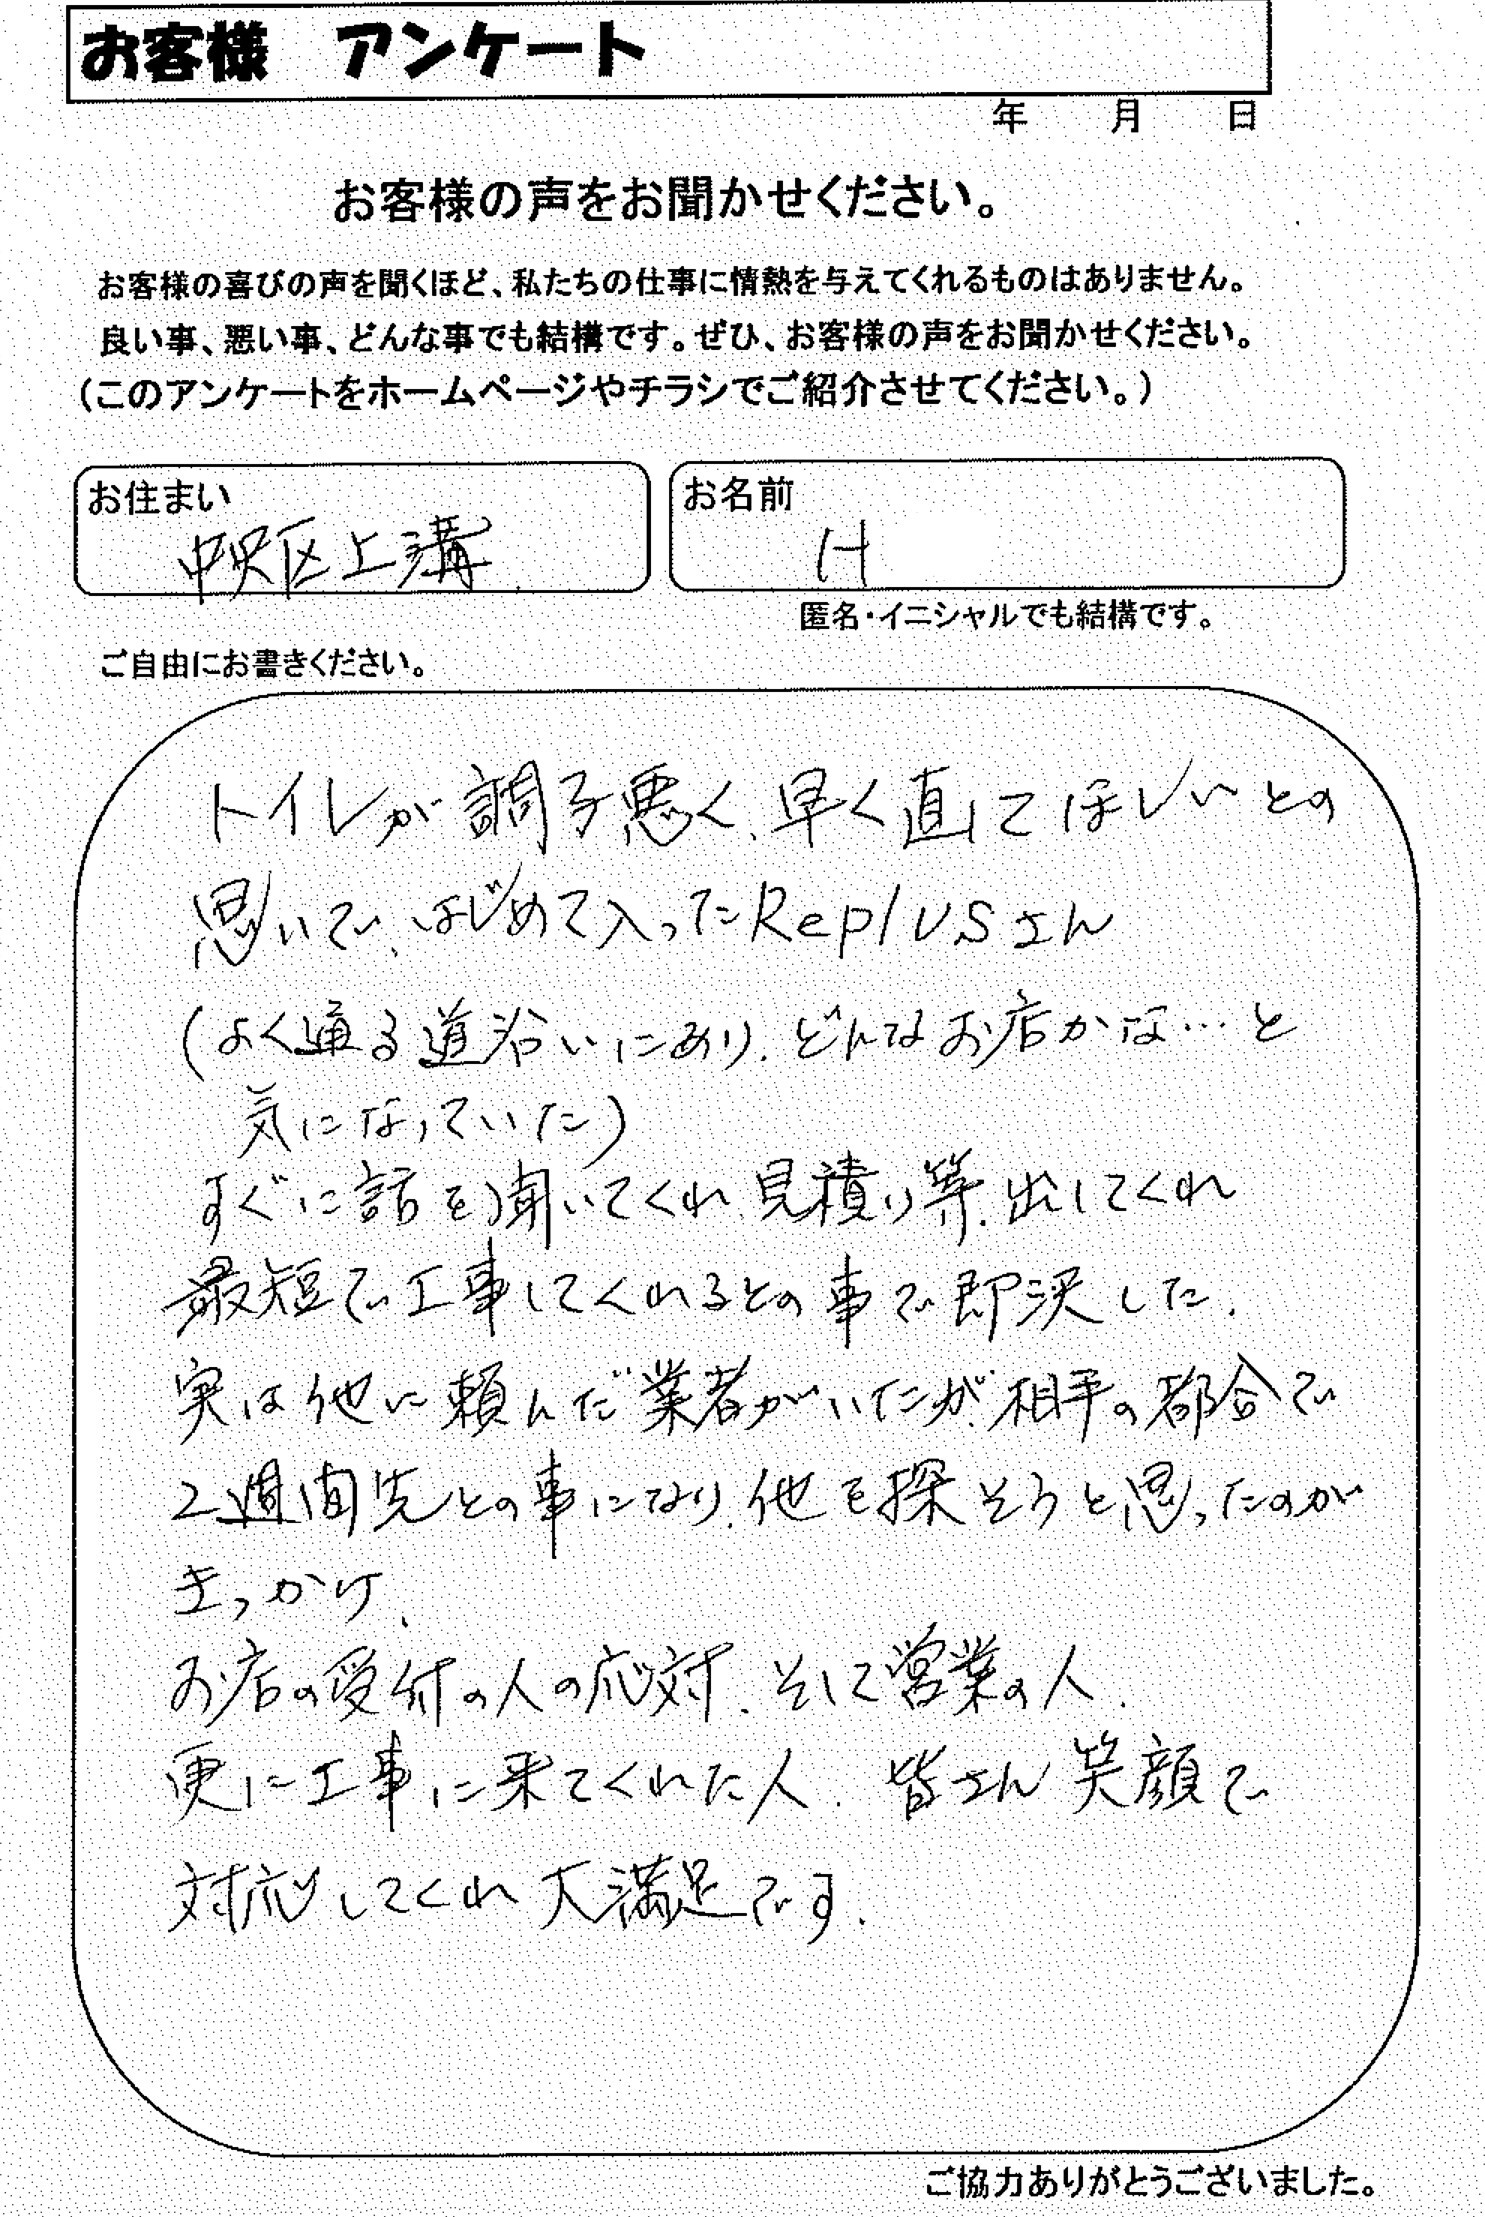 お客様 アンケート
年 月 日
お客様の声をお聞かせください。
お客様の喜びの声を聞くほど、私たちの仕事に情熱を与えてくれるものはありません。
良い事、悪い事、どんな事でも結構です。ぜひ、お客様の声をお聞かせください。
(このアンケートをホームページやチラシでご紹介させてください。)
お住まい
中央区上溝
お名前
H
匿名・イニシャルでも結構です。
ご自由にお書きください。
トイレが調子悪く、早く直してほしいとの
思いで、はじめて入ったReplusさん
(よく通る道沿いにあり、どんなお店かな…と
気になっていた)
すぐに話を聞いてくれ、見積り等、出してくれ
最短で工事してくれるとの事で即決した。
実は他に頼んだ業者がいたが、相手の都合で
2週間先との事になり、他を探そうと思ったのが
きっかけ、
お店の受付の人の応対、そして営業の人、
更に工事に来てくれた人、皆さん笑顔で
対応してくれ大満足です。
ご協力ありがとうございました。